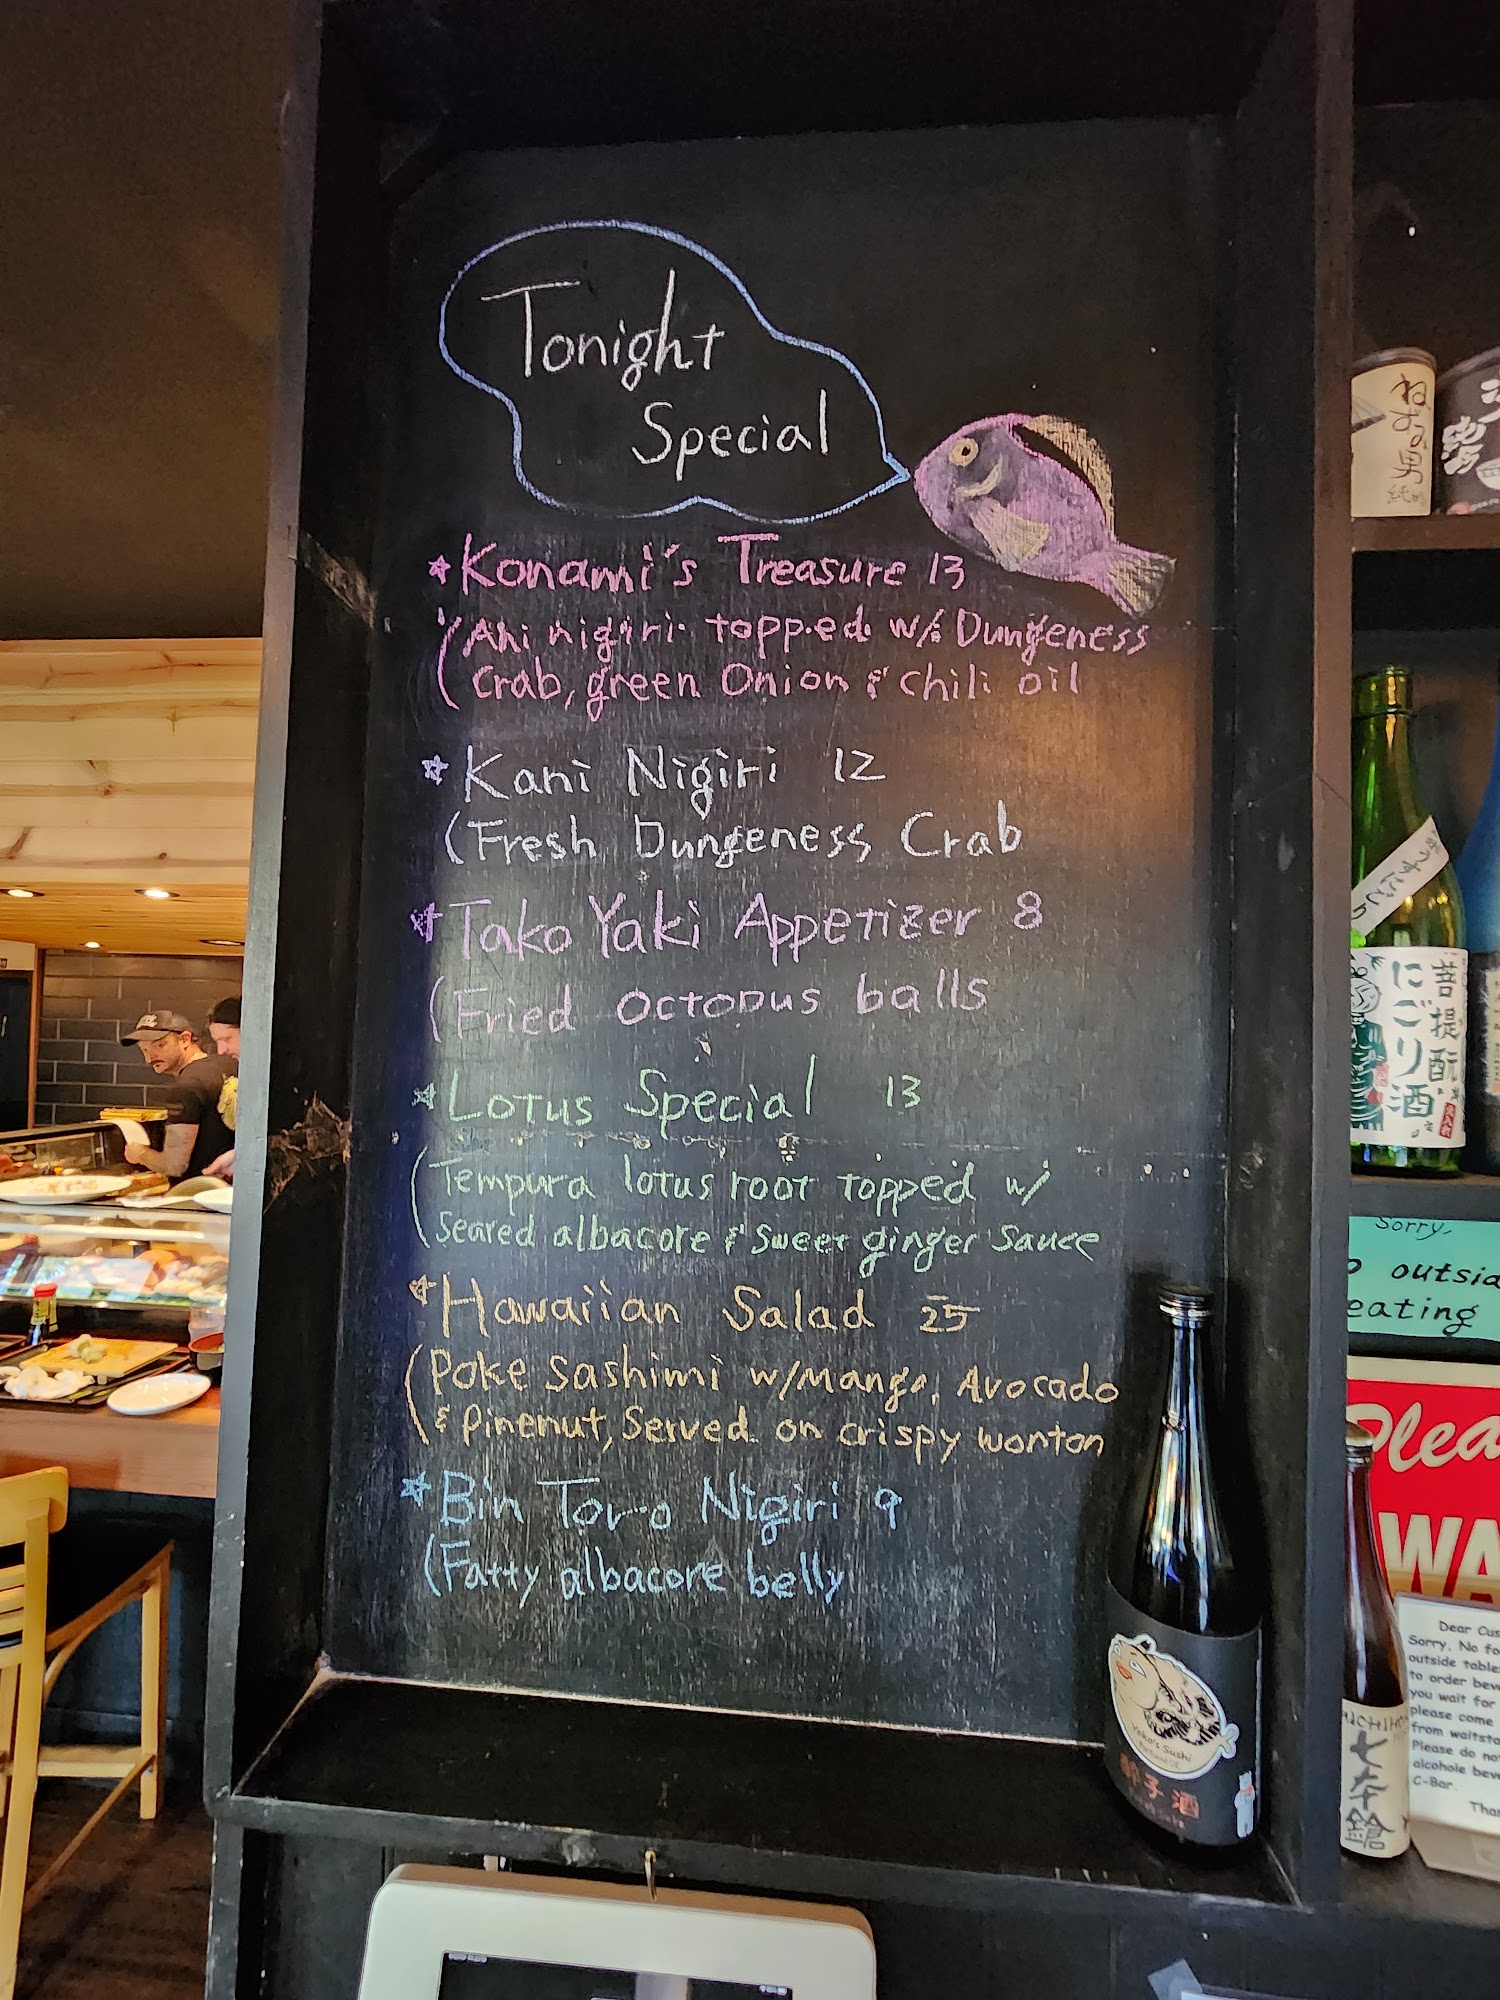 Tonight
Special
Konami's Treasure 13
(Ahi nigiri topped w/ Dungeness
Crab, green Onion & chili oil
Kani Nigiri 12
(Fresh Dungeness Crab
Tako Yaki Appetizer 8
(Fried octopus balls
Lotus Special 13
(Tempura lotus root topped w/
Seared albacore & Sweet ginger Sauce
Hawaiian Salad 25
(Poke Sashimi w/Mango, Avocado
& Pinenut, Served on crispy wonton
Bin Toro Nigiri 9
(Fatty albacore belly
Yoko's Sushi
Portland OR
子酒
ねずみ男
純吟
うすにごり
菩提酛
にごり酒
Sorry,
outsid
eating
Plea
WA
Dear Cus
Sorry, No fo
outside table
to order beve
you wait for
please come
from waitsta
Please do no
alcohole bev
C-Bar.
Than
七本鎗